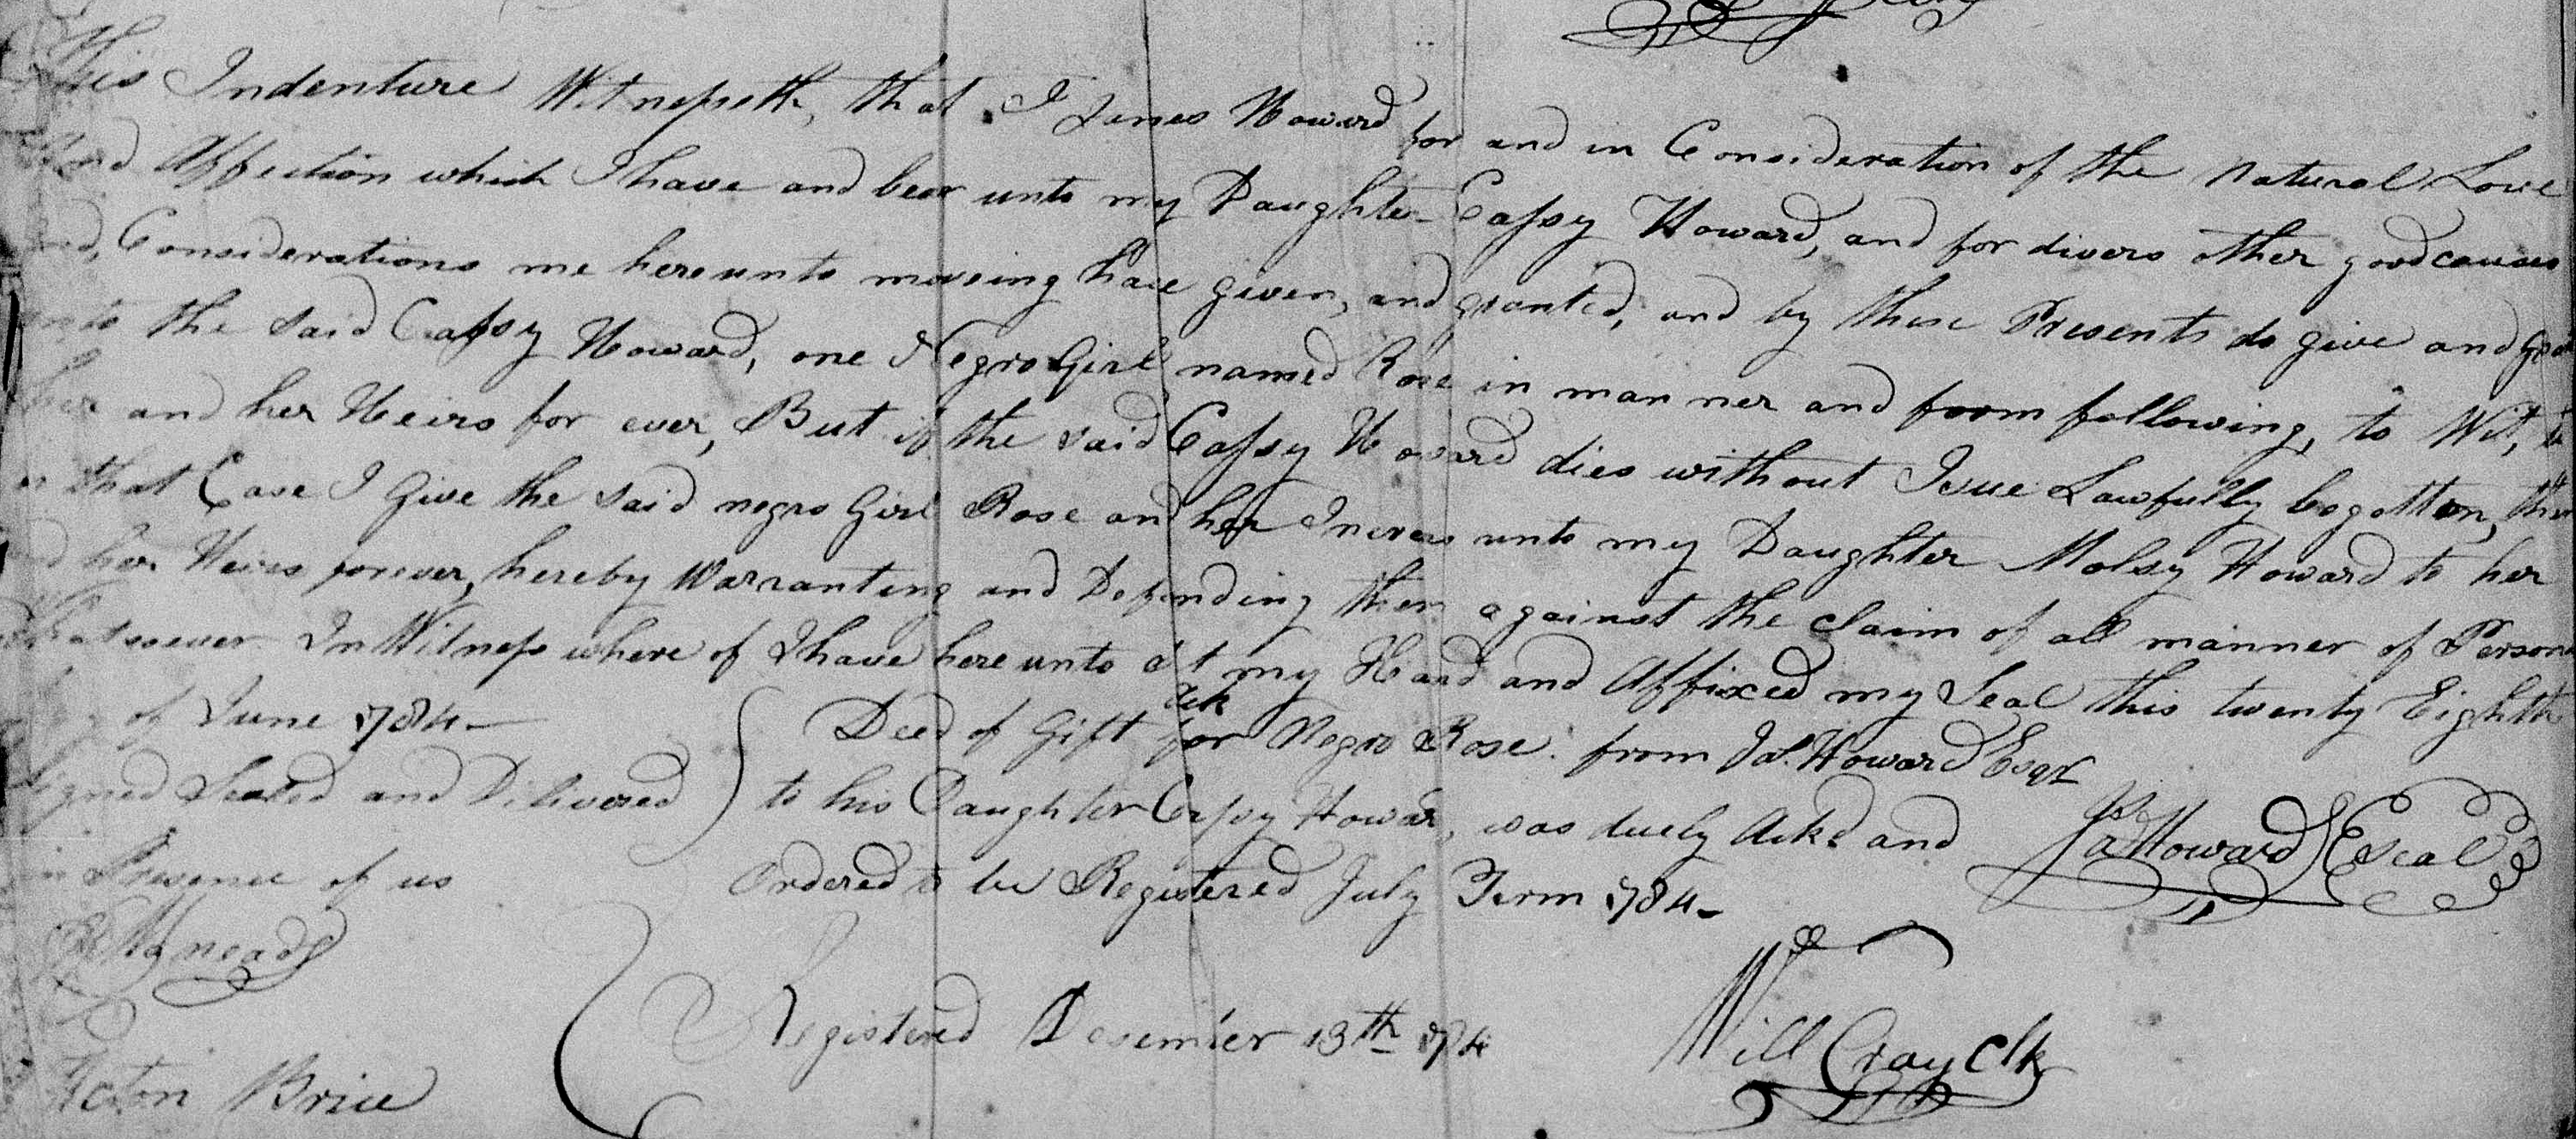 This Indenture Witnesseth, that I James Howard for and in Consideration of the Natural Love
and Affection which I have and bear unto my Daughter Cassy Howard, and for divers other good causes
and, Considerations me hereunto moving have given, and granted, and by these Presents do give and grant
unto the said Cassy Howard, one Negro Girl named Rose in manner and form following, to Wit, to
her and her Heirs for ever, But if the said Cassy Howard dies without Isue Lawfully begotten, then
in that Case I Give the said negro Girl Rose and her Increas unto my Daughter Molsy Howard to her
and her Heirs forever, hereby Warranting and Defending them against the claim of all manner of Persons
whatsoever In Witness where of I have here unto set my Hand and Affixed my Seal this twenty Eighth
day of June 1784—
Signed Sealed and Delivered
in Presence of us
Acton Brice
Deed of Gift for Negro Rose from Ja.s Howard Esqr
to his Daughter Cassy Howard, was duely Ackd and
Ordered to be Registered July Term 1784—
Jas Howard Seal
Will Cray Clk
Registered Desember 13th 1784